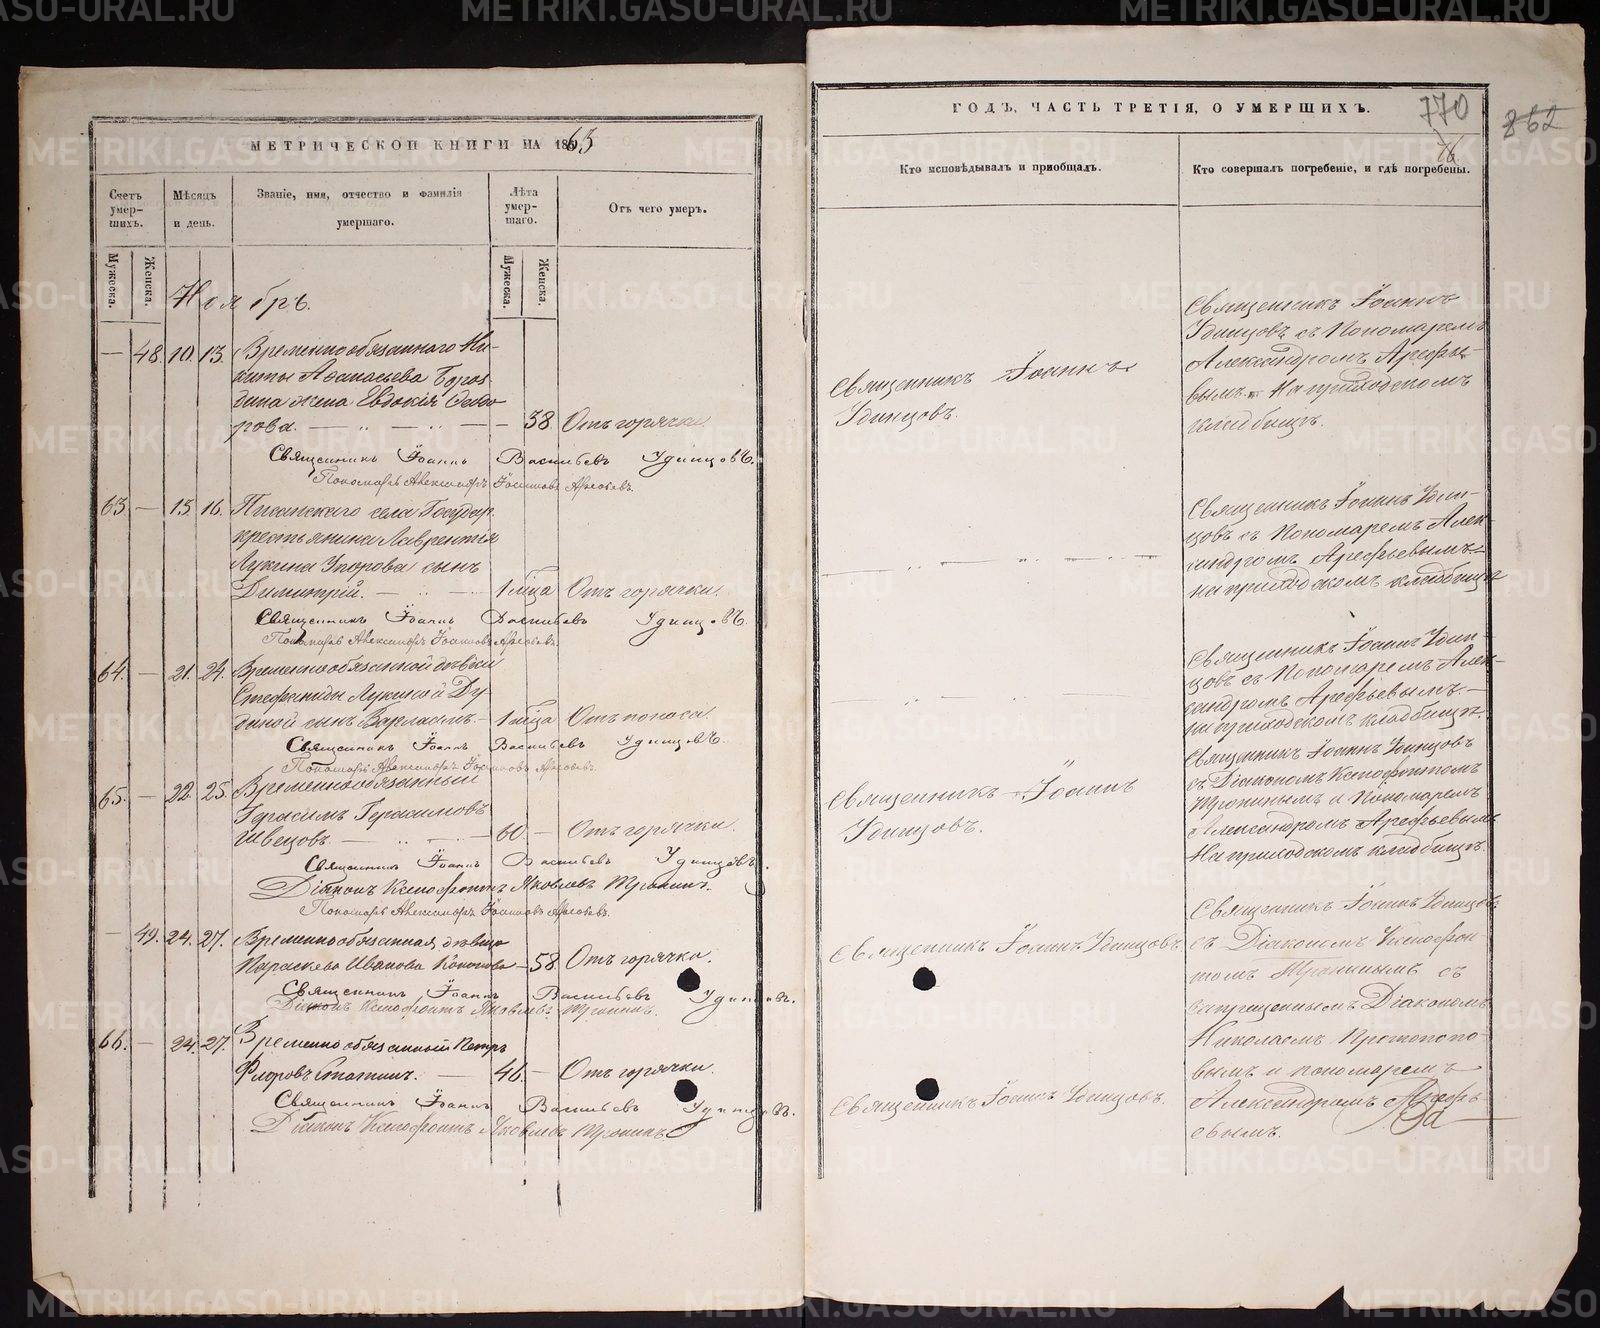 МЕТРИЧЕСКОЙ КНИГИ НА 1863
Счетъ умер-шихъ.
Мѣсяцъ и день.
Званіе, имя, отчество и фамилія умершаго.
Лѣта умер-шаго.
Отъ чего умеръ.
Мужеска.
Женска.
Мужеска.
Женска.
Ноябрь.
— 48. 10. 13. Временнообязаннаго Ни-
киты Аѳанасьева Бороз
дина жена Евдокія Ѳеодо
рова. — 38. Отъ горячки.
Священникъ Іоаннъ Васильевъ Удинцовъ.
Пономарь Александръ Іоанновъ Арефьевъ.
63. — 13. 16. Писанскаго села Государ.
крестьянина Лаврентія
Лукина Упорова сынъ
Димитрій. — 1 мѣсца Отъ горячки.
Священникъ Іоаннъ Васильевъ Удинцовъ.
Пономарь Александръ Іоанновъ Арефьевъ.
64. — 21. 24. Временнообязанной дѣвки
Стефаниды Лукиной Ду
диной сынъ Варлаамъ. — 1 мѣсца Отъ поноса.
Священникъ Іоаннъ Васильевъ Удинцовъ.
Пономарь Александръ Іоанновъ Арефьевъ.
65. — 22. 25. Временнообязанный
Герасимъ Герасимовъ
Швецовъ. — 60. — Отъ горячки.
Священникъ Іоаннъ Васильевъ Удинцовъ.
Діаконъ Ксенофонтъ Яковлевъ Тронинъ.
Пономарь Александръ Іоанновъ Арефьевъ.
— 49. 24. 27. Временнообязанная дѣвица
Параскева Иванова Кононова — 58. Отъ горячки.
Священникъ Іоаннъ Васильевъ Удинцовъ.
Діаконъ Ксенофонтъ Яковлевъ Тронинъ.
66. — 24. 27. Временнообязанный Петръ
Флоровъ Статинъ. — 46. — Отъ горячки.
Священникъ Іоаннъ Васильевъ Удинцовъ.
Діаконъ Ксенофонтъ Яковлевъ Тронинъ
ГОДЪ, ЧАСТЬ ТРЕТІЯ, О УМЕРШИХЪ.
770
862
76.
Кто исповѣдывалъ и приобщалъ.
Кто совершалъ погребеніе, и гдѣ погребены.
Священникъ Іоаннъ
Удинцовъ.
Священникъ Іоаннъ
Удинцовъ съ Пономаремъ
Александромъ Арефье-
вымъ. На приходскомъ
кладбищѣ.
Священникъ Іоаннъ Удин-
цовъ съ Пономаремъ Алек-
сандромъ Арефьевымъ.
на приходскомъ кладбищѣ
Священникъ Іоаннъ Удин-
цовъ съ Пономаремъ Алек-
сандромъ Арефьевымъ. —
на приходскомъ кладбищѣ.
Священникъ Іоаннъ
Удинцовъ.
Священникъ Іоаннъ Удинцовъ
съ Діакономъ Ксенофонтомъ
Тронинымъ и Пономаремъ
Александромъ Арефьевымъ
На приходскомъ кладбищѣ.
Священникъ Іоаннъ Удинцовъ.
Священникъ Іоаннъ Удинцовъ
съ Діакономъ Ксенофон-
томъ Тронинымъ съ
запрещеннымъ Діакономъ
Николаемъ Протопопо-
вымъ и пономаремъ
Александромъ Арефь-
евымъ.
Священникъ Іоаннъ Удинцовъ.
METRIKI.GASO-URAL.RU